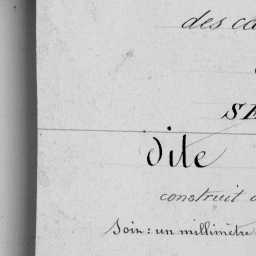 des ca
SE
dite
construit
Soit : un millimètre